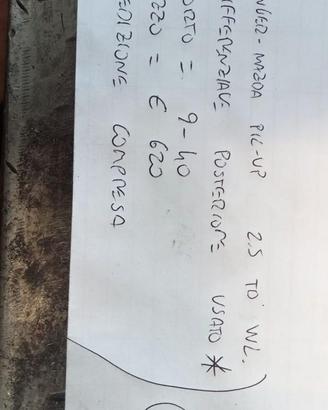 NGER-MAZDA PIC-UP 2.5 TD WL.
IFFERENZIALE POSTERIORE USATO *
ORTO = 9-40
ZZO = € 620
EDIZIONE COMPRESA